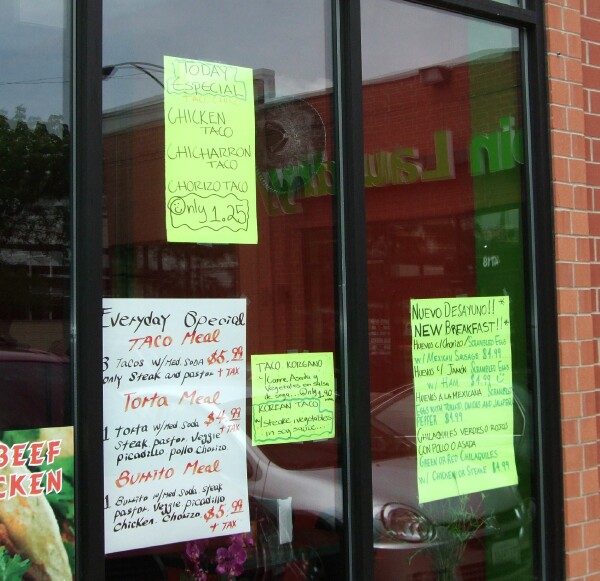 TODAY
ESPECIAL
CHICKEN
TACO
CHICHARRON
TACO
CHORIZO TACO
Only 1.25
Everyday Special
TACO Meal
3 Tacos w/Med. SODA $5.99
only Steak and pastor + TAX
Torta Meal
1 Torta w/Med Soda $4.99
steak, pastor. Veggie + TAX
picadillo pollo Chorizo.
Burrito Meal
1 Burrito w/Med Soda steak
pastor. Veggie picadillo
chicken. Chorizo. $5.99
+ TAX
TACO KOREANO
Vegetales en salsa
de soya... Only 1.40
KOREAN TACO
w/steak, vegetables
in soy sauce...
NUEVO DESAYUNO!!
NEW BREAKFAST!!
HUEVOS c/Chorizo/SCRAMBLED EGGS
w/ MEXICAN SAUSAGE $4.99
HUEVOS c/ JAMÓN SCRAMBLED EGGS
w/ HAM $4.99
HUEVOS A LA MEXICANA SCRAMBLED
EGGS WITH TOMATO, ONIONS AND JALAPEÑO
PEPPER $4.99
CHILAQUILES VERDES O ROJOS
CON POLLO O ASADA
GREEN OR RED CHILAQUILES
w/ CHICKEN OR STEAK $4.99
BEEF
CKEN
in Laundry